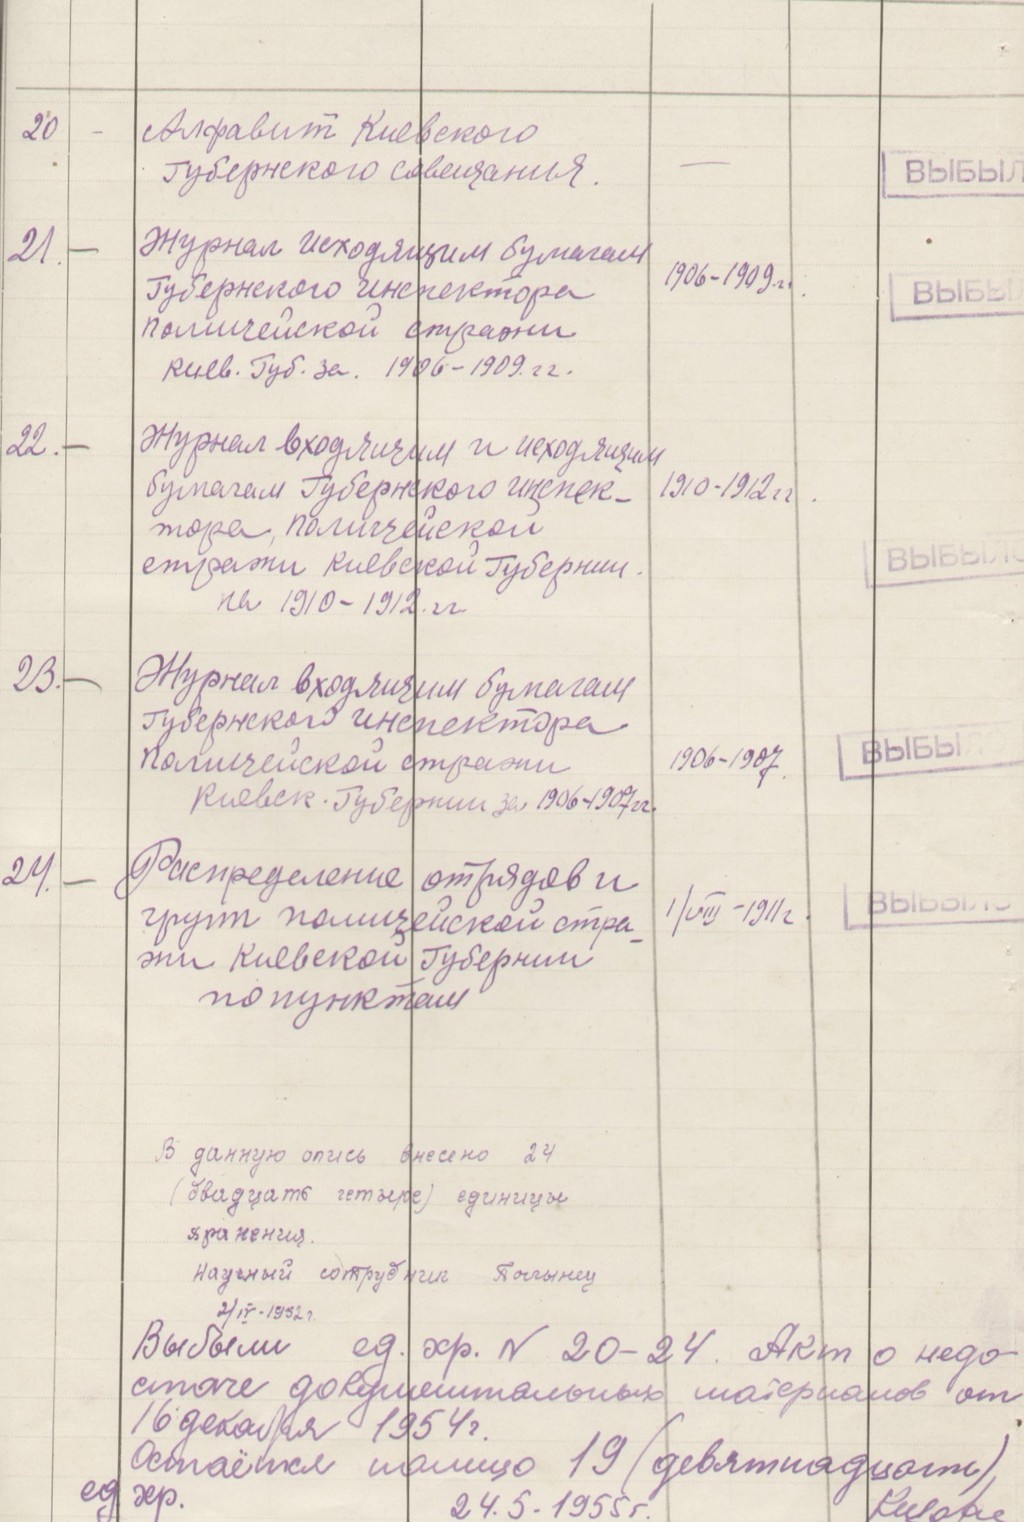 20 - Алфавит Киевского
Губернского совещания. —
ВЫБЫЛ
21. — Журнал исходящим бумагам
Губернского инспектора 1906-1909.г.
ВЫБЫ
полицейской стражи
Киев. Губ. за. 1906-1909.гг.
22. — Журнал входящим и исходящим
бумагам Губернского инспек- 1910-1912гг.
тора, полицейской
стражи Киевской Губернии.
ВЫБЫЛО
на 1910-1912.гг
23. — Журнал входящим бумагам
Губернского инспектора
полицейской стражи 1906-1907.
ВЫБЫ
Киевск. Губернии за 1906-1907гг.
24. — Распределение отрядов и
групп полицейской стра- 1/VIII-1911г.
ВЫБЫЛО
жи Киевской Губернии
по пунктам
В данную опись внесено 24
(двадцать четыре) единицы
хранения.
Научный сотрудник
2/IV-1952г.
Выбыли ед. хр. N 20-24. Акт о недо-
стаче документальных материалов от
16 декабря 1954г.
Остаётся налицо 19 (девятнадцать)
ед хр. 24.5-1955г.